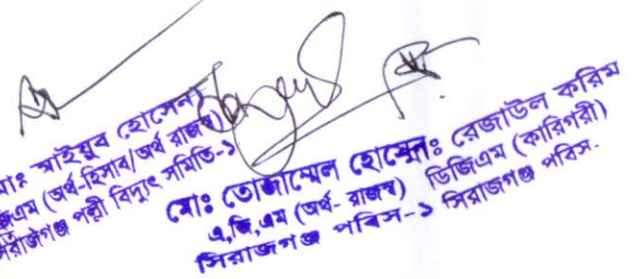 মোঃ আইয়ুব হোসেন)
জিএম (অর্থ-হিসাব/অর্থ রাজস্ব)
সিরাজগঞ্জ পল্লী বিদ্যুৎ সমিতি-১
মোঃ তোজাম্মেল হোসেন
এ,জি,এম (অর্থ- রাজস্ব)
সিরাজগঞ্জ পবিস-১
মোঃ রেজাউল করিম
ডিজিএম (কারিগরী)
সিরাজগঞ্জ পবিস-